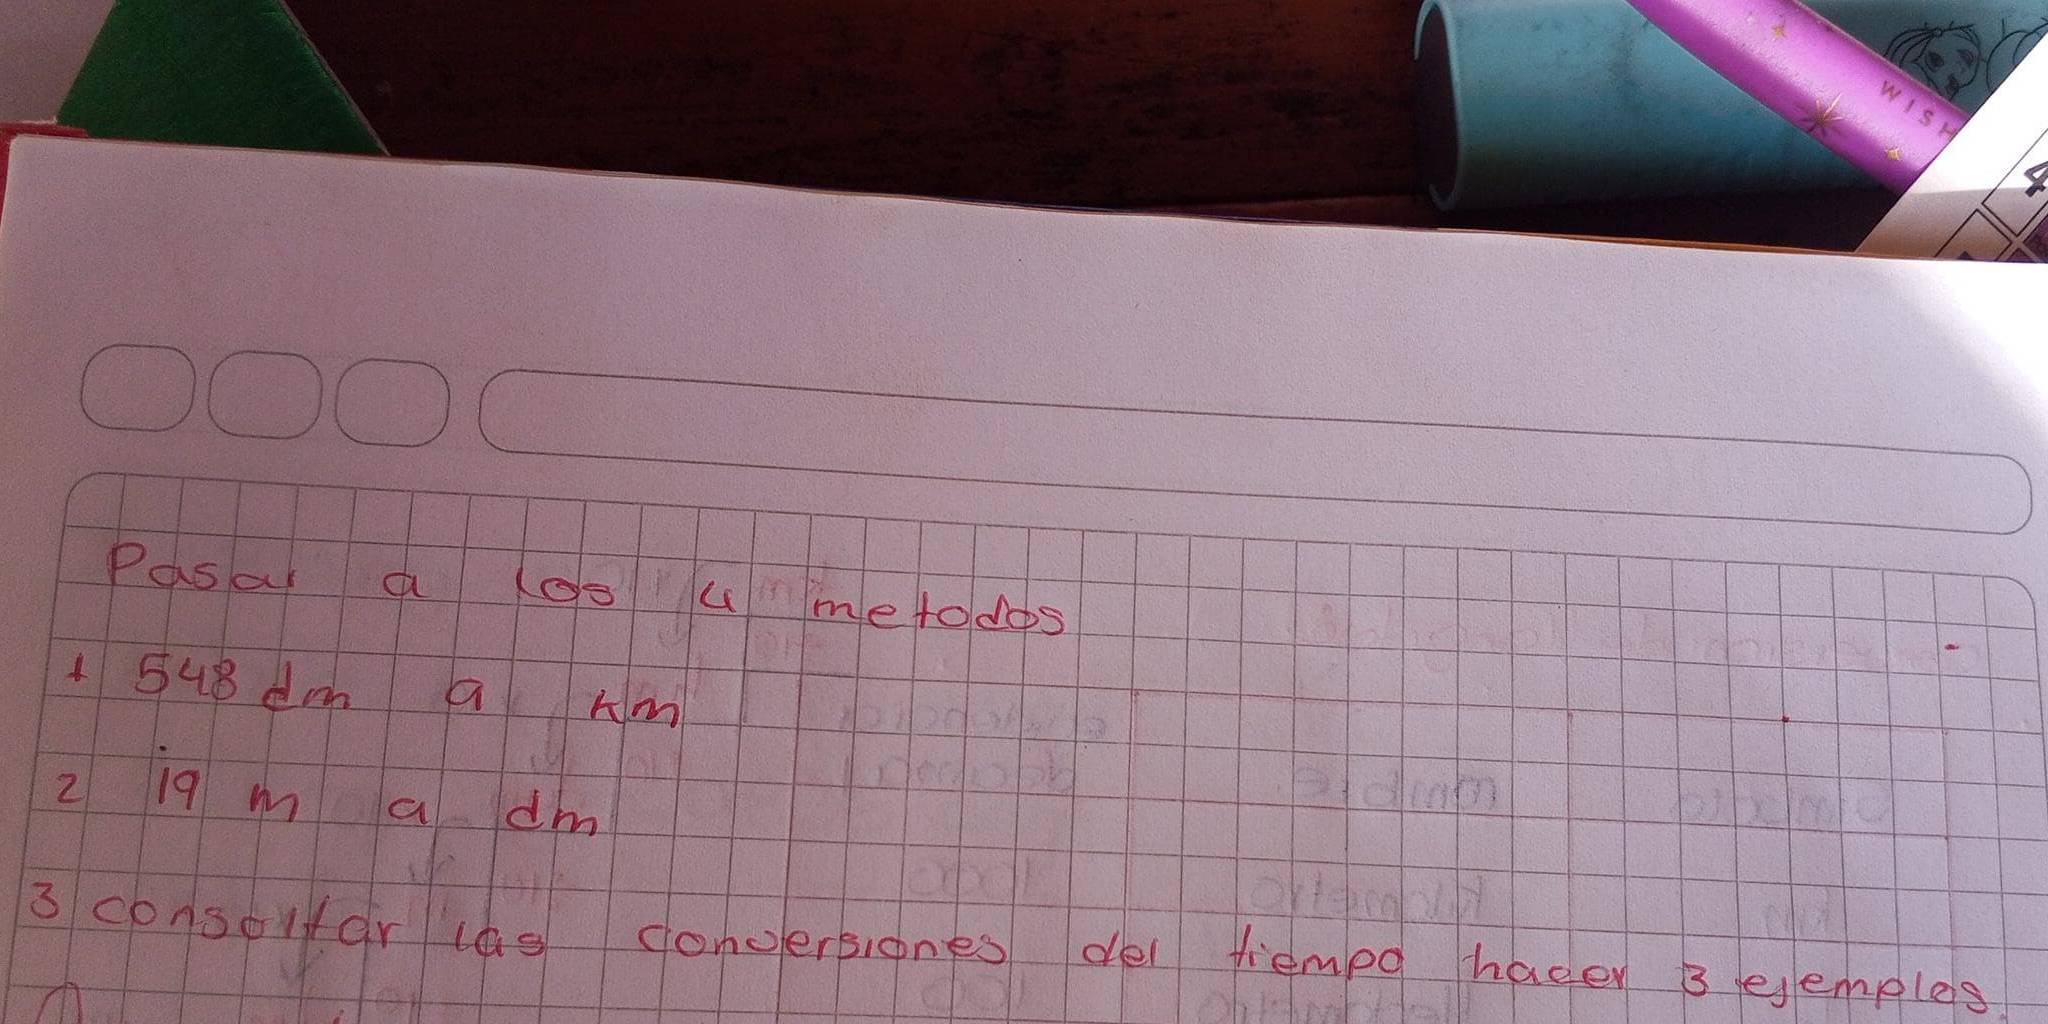 WISH
4
Pasar a los 4 metodos
1 548 dm a km
2 19 m a dm
3 consultar las conversiones del tiempo hacer 3 ejemplos